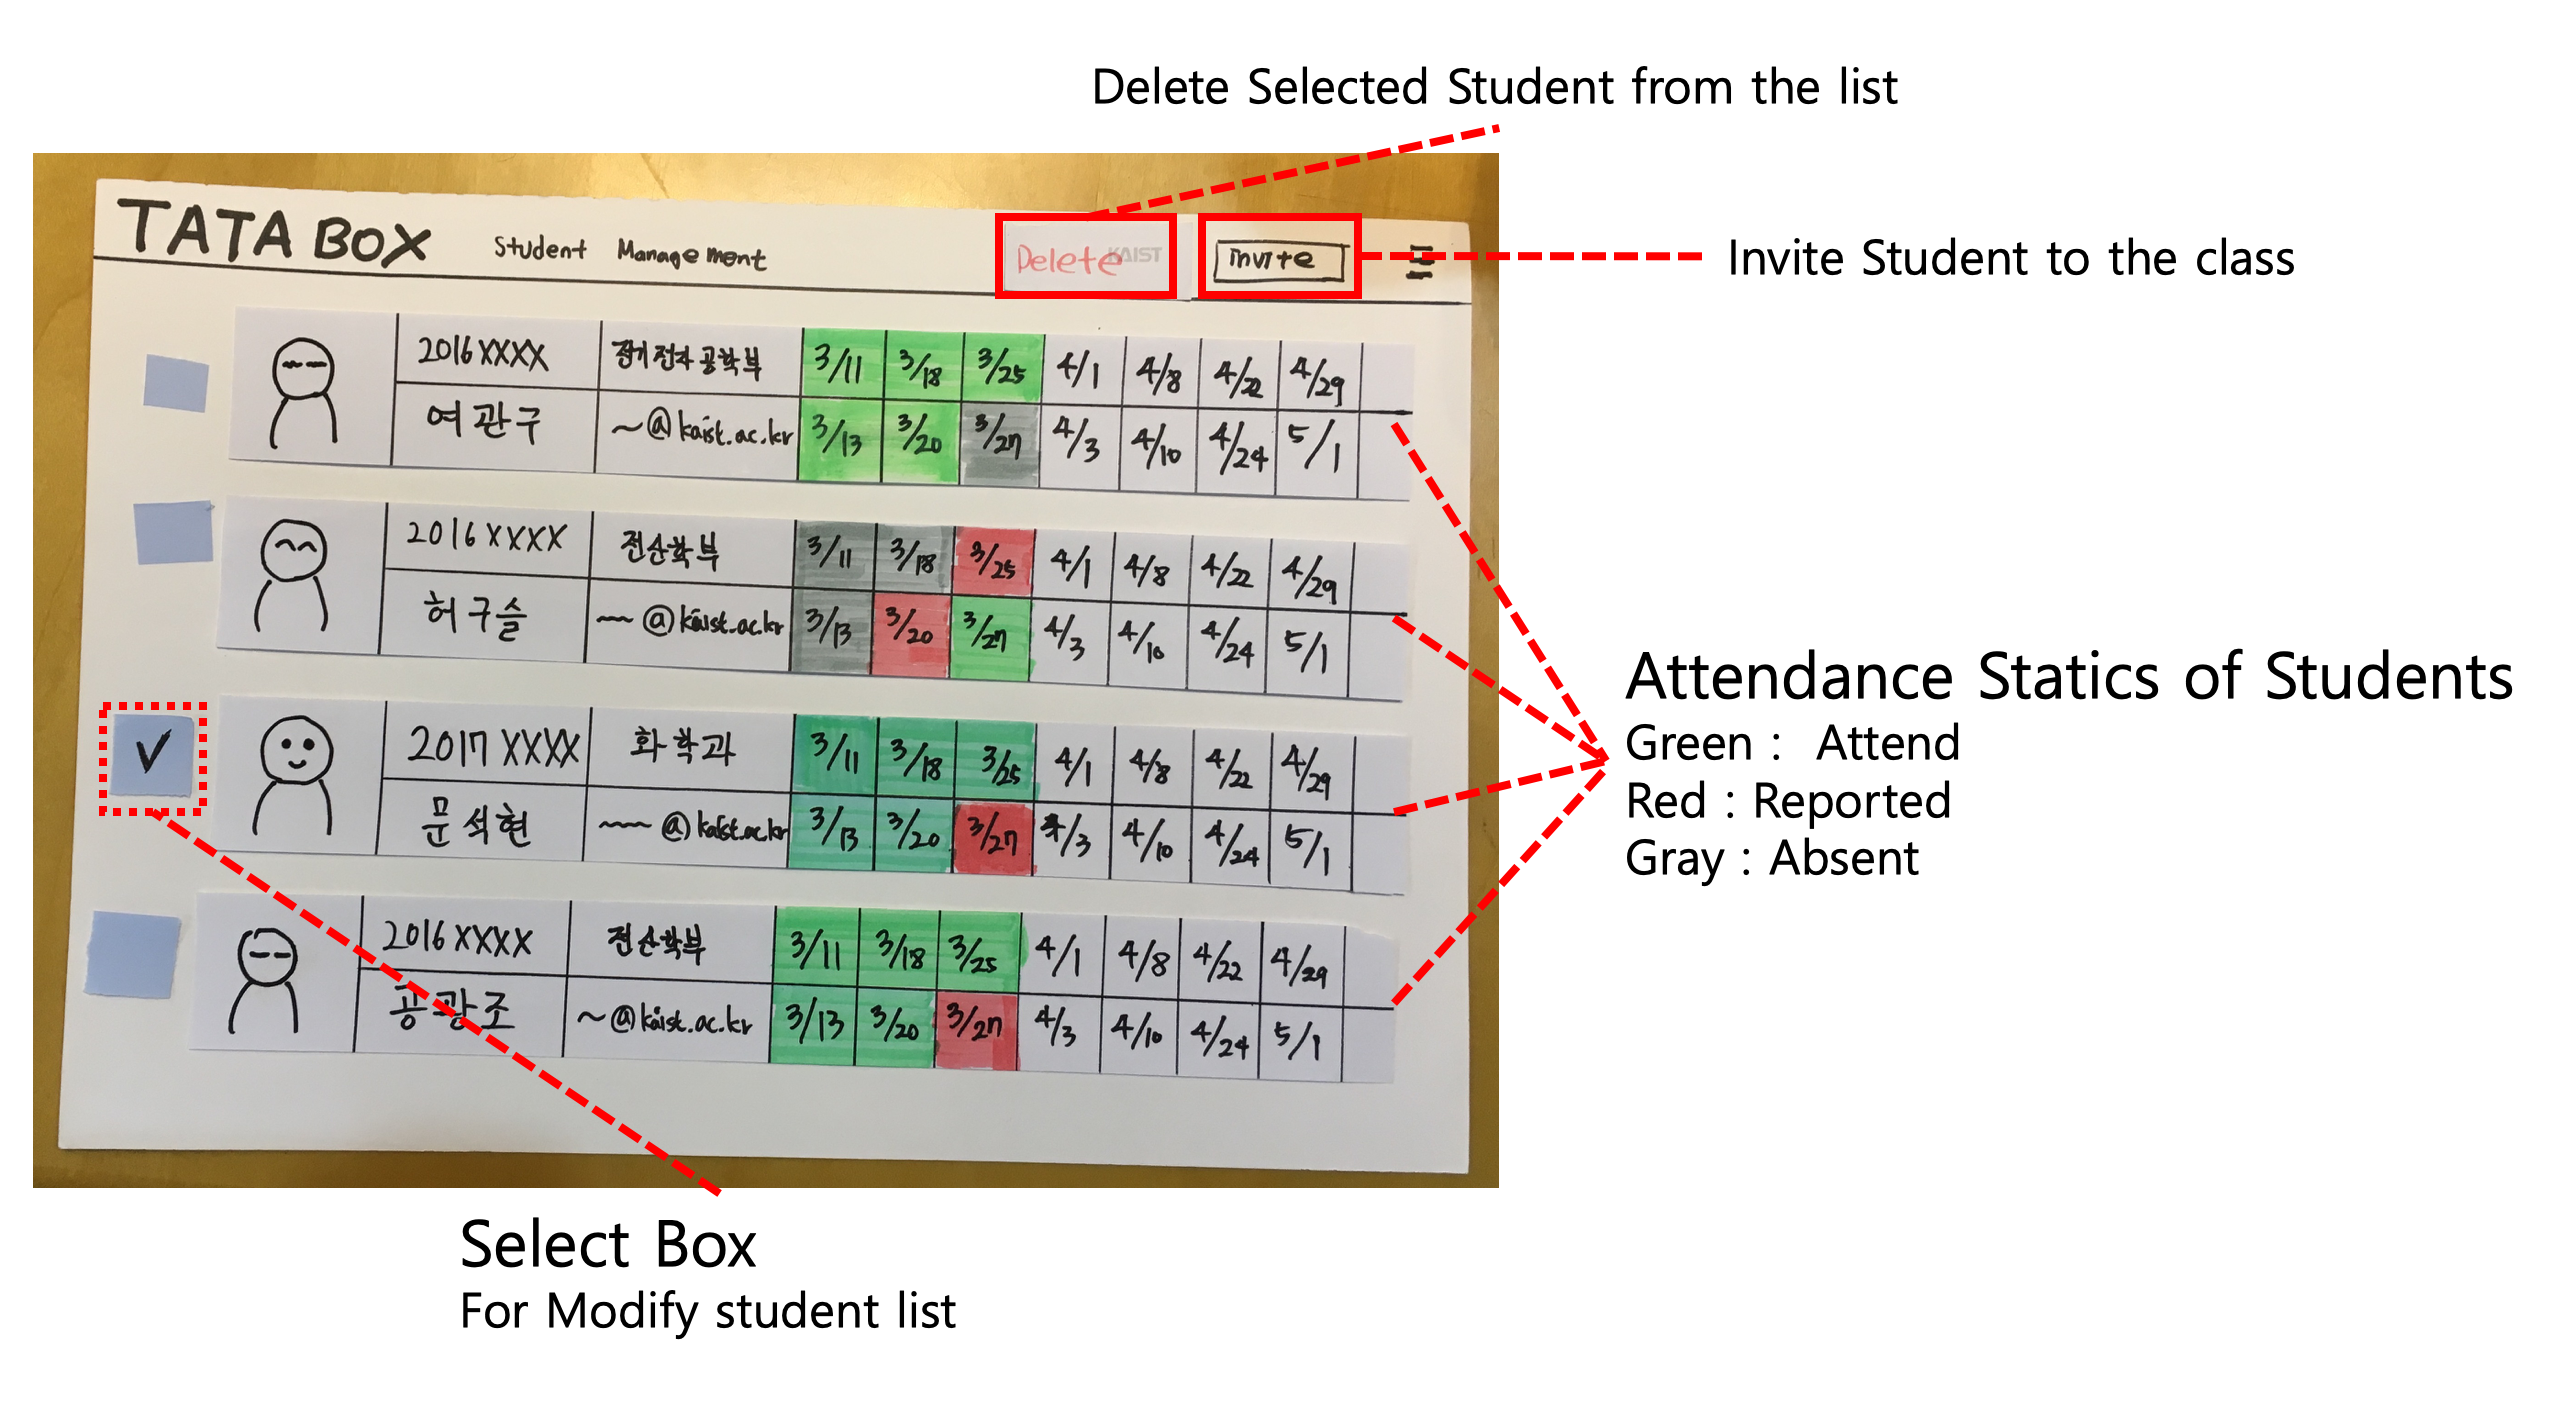 Delete Selected Student from the list
TATA BOX Student Management Delete KAIST Invite
Invite Student to the class
2016XXXX 전기전자공학부 3/11 3/18 3/25 4/1 4/8 4/22 4/29
여관구 ~@kaist.ac.kr 3/13 3/20 3/27 4/3 4/10 4/24 5/1
2016XXXX 전산학부 3/11 3/18 3/25 4/1 4/8 4/22 4/29
허구슬 ~@kaist.ac.kr 3/13 3/20 3/27 4/3 4/10 4/24 5/1
2017XXXX 화학과 3/11 3/18 3/25 4/1 4/8 4/22 4/29
문석현 ~@kaist.ac.kr 3/13 3/20 3/27 4/3 4/10 4/24 5/1
2016XXXX 전산학부 3/11 3/18 3/25 4/1 4/8 4/22 4/29
공광조 ~@kaist.ac.kr 3/13 3/20 3/27 4/3 4/10 4/24 5/1
Attendance Statics of Students
Green : Attend
Red : Reported
Gray : Absent
Select Box
For Modify student list